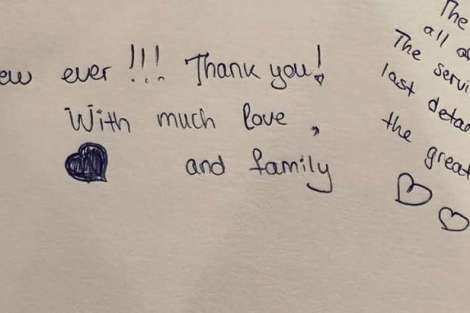 ew ever!!! Thank you!
With much love,
and family
The
all a
The servi
last deta
the great